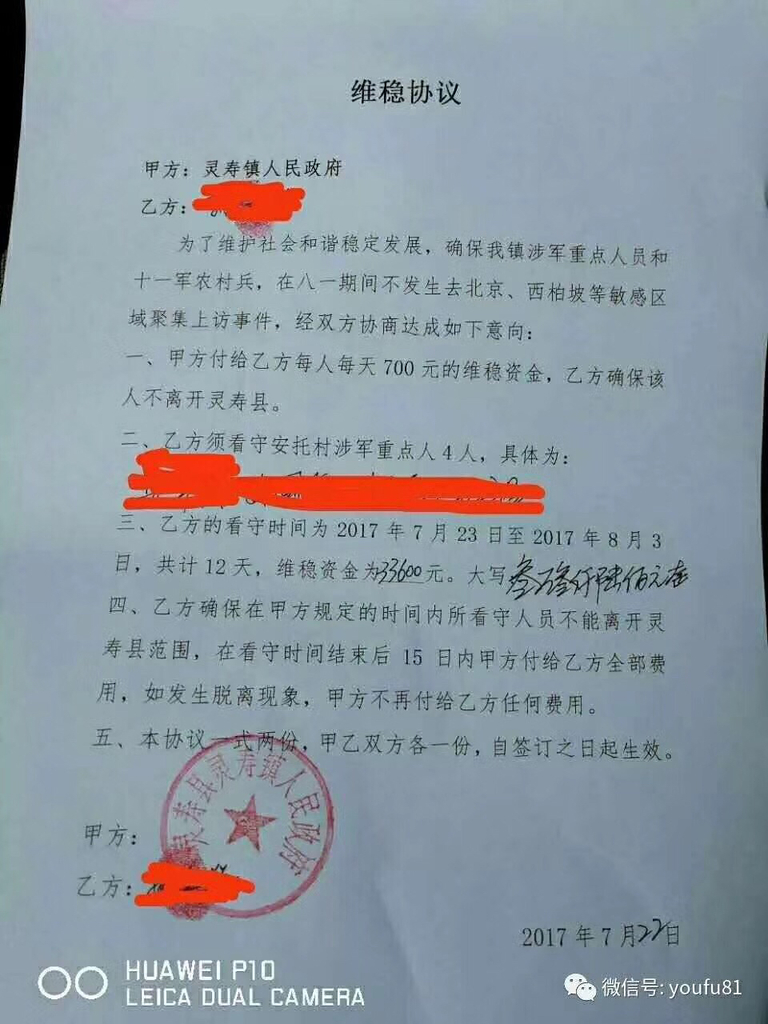 维稳协议
甲方：灵寿镇人民政府
乙方：
为了维护社会和谐稳定发展，确保我镇涉军重点人员和
十一军农村兵，在八一期间不发生去北京、西柏坡等敏感区
域聚集上访事件，经双方协商达成如下意向：
一、甲方付给乙方每人每天 700 元的维稳资金，乙方确保该
人不离开灵寿县。
二、乙方须看守安托村涉军重点人 4 人，具体为：
三、乙方的看守时间为 2017 年 7 月 23 日至 2017 年 8 月 3
日，共计 12 天，维稳资金为33600元。大写叁万叁仟陆佰元整
四、乙方确保在甲方规定的时间内所看守人员不能离开灵
寿县范围，在看守时间结束后 15 日内甲方付给乙方全部费
用，如发生脱离现象，甲方不再付给乙方任何费用。
五、本协议一式两份，甲乙双方各一份，自签订之日起生效。
灵寿县灵寿镇人民政府
甲方：
乙方：
2017 年 7 月22日
HUAWEI P10
LEICA DUAL CAMERA
微信号: youfu81